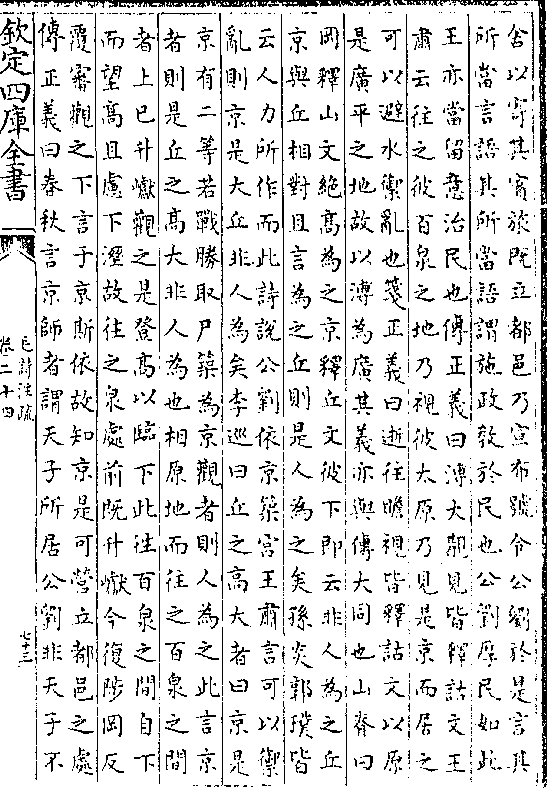 舍以寄其賓旅既立都邑乃宣布號令公劉於是言其
所當言語其所當語謂施政敎於民也公劉厚民如此
王亦當留意治民也傳正義曰溥大覯見皆釋詁文王
肅云往之彼百泉之地乃視彼大原乃見是京而居之
可以避水禦亂也箋正義曰逝往瞻視皆釋詁文以原
是廣平之地故以溥為廣其義亦與傳大同也山脊曰
岡釋山文絶髙為之京釋丘文彼下即云非人為之丘
京與丘相對且言為之丘則是人為之矣孫炎郭璞皆
云人力所作而此詩說公劉依京築宫王肅言可以禦
亂則京是大丘非人為矣李巡曰丘之高大者曰京是
京有二等若戰勝取尸築為京觀者則人為之此言京
者則是丘之高大非人為也相原地而往之百泉之間
者上已升巘觀之是登高以臨下此徃百泉之間自下
而望髙且慮下溼故往之泉處前既升巘今復陟岡反
覆審觀之下言于京斯依故知京是可營立都邑之處
傳正義曰春秋言京師者謂天子所居公劉非天子不
欽定四庫全書
毛詩注疏
卷二十四
七十三